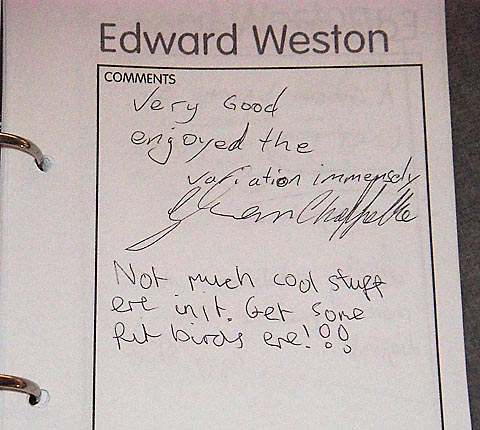 Edward Weston
COMMENTS
Very Good
enjoyed the
variation immensely
Not much cool stuff
ere init. Get some
fit birds ere!!!